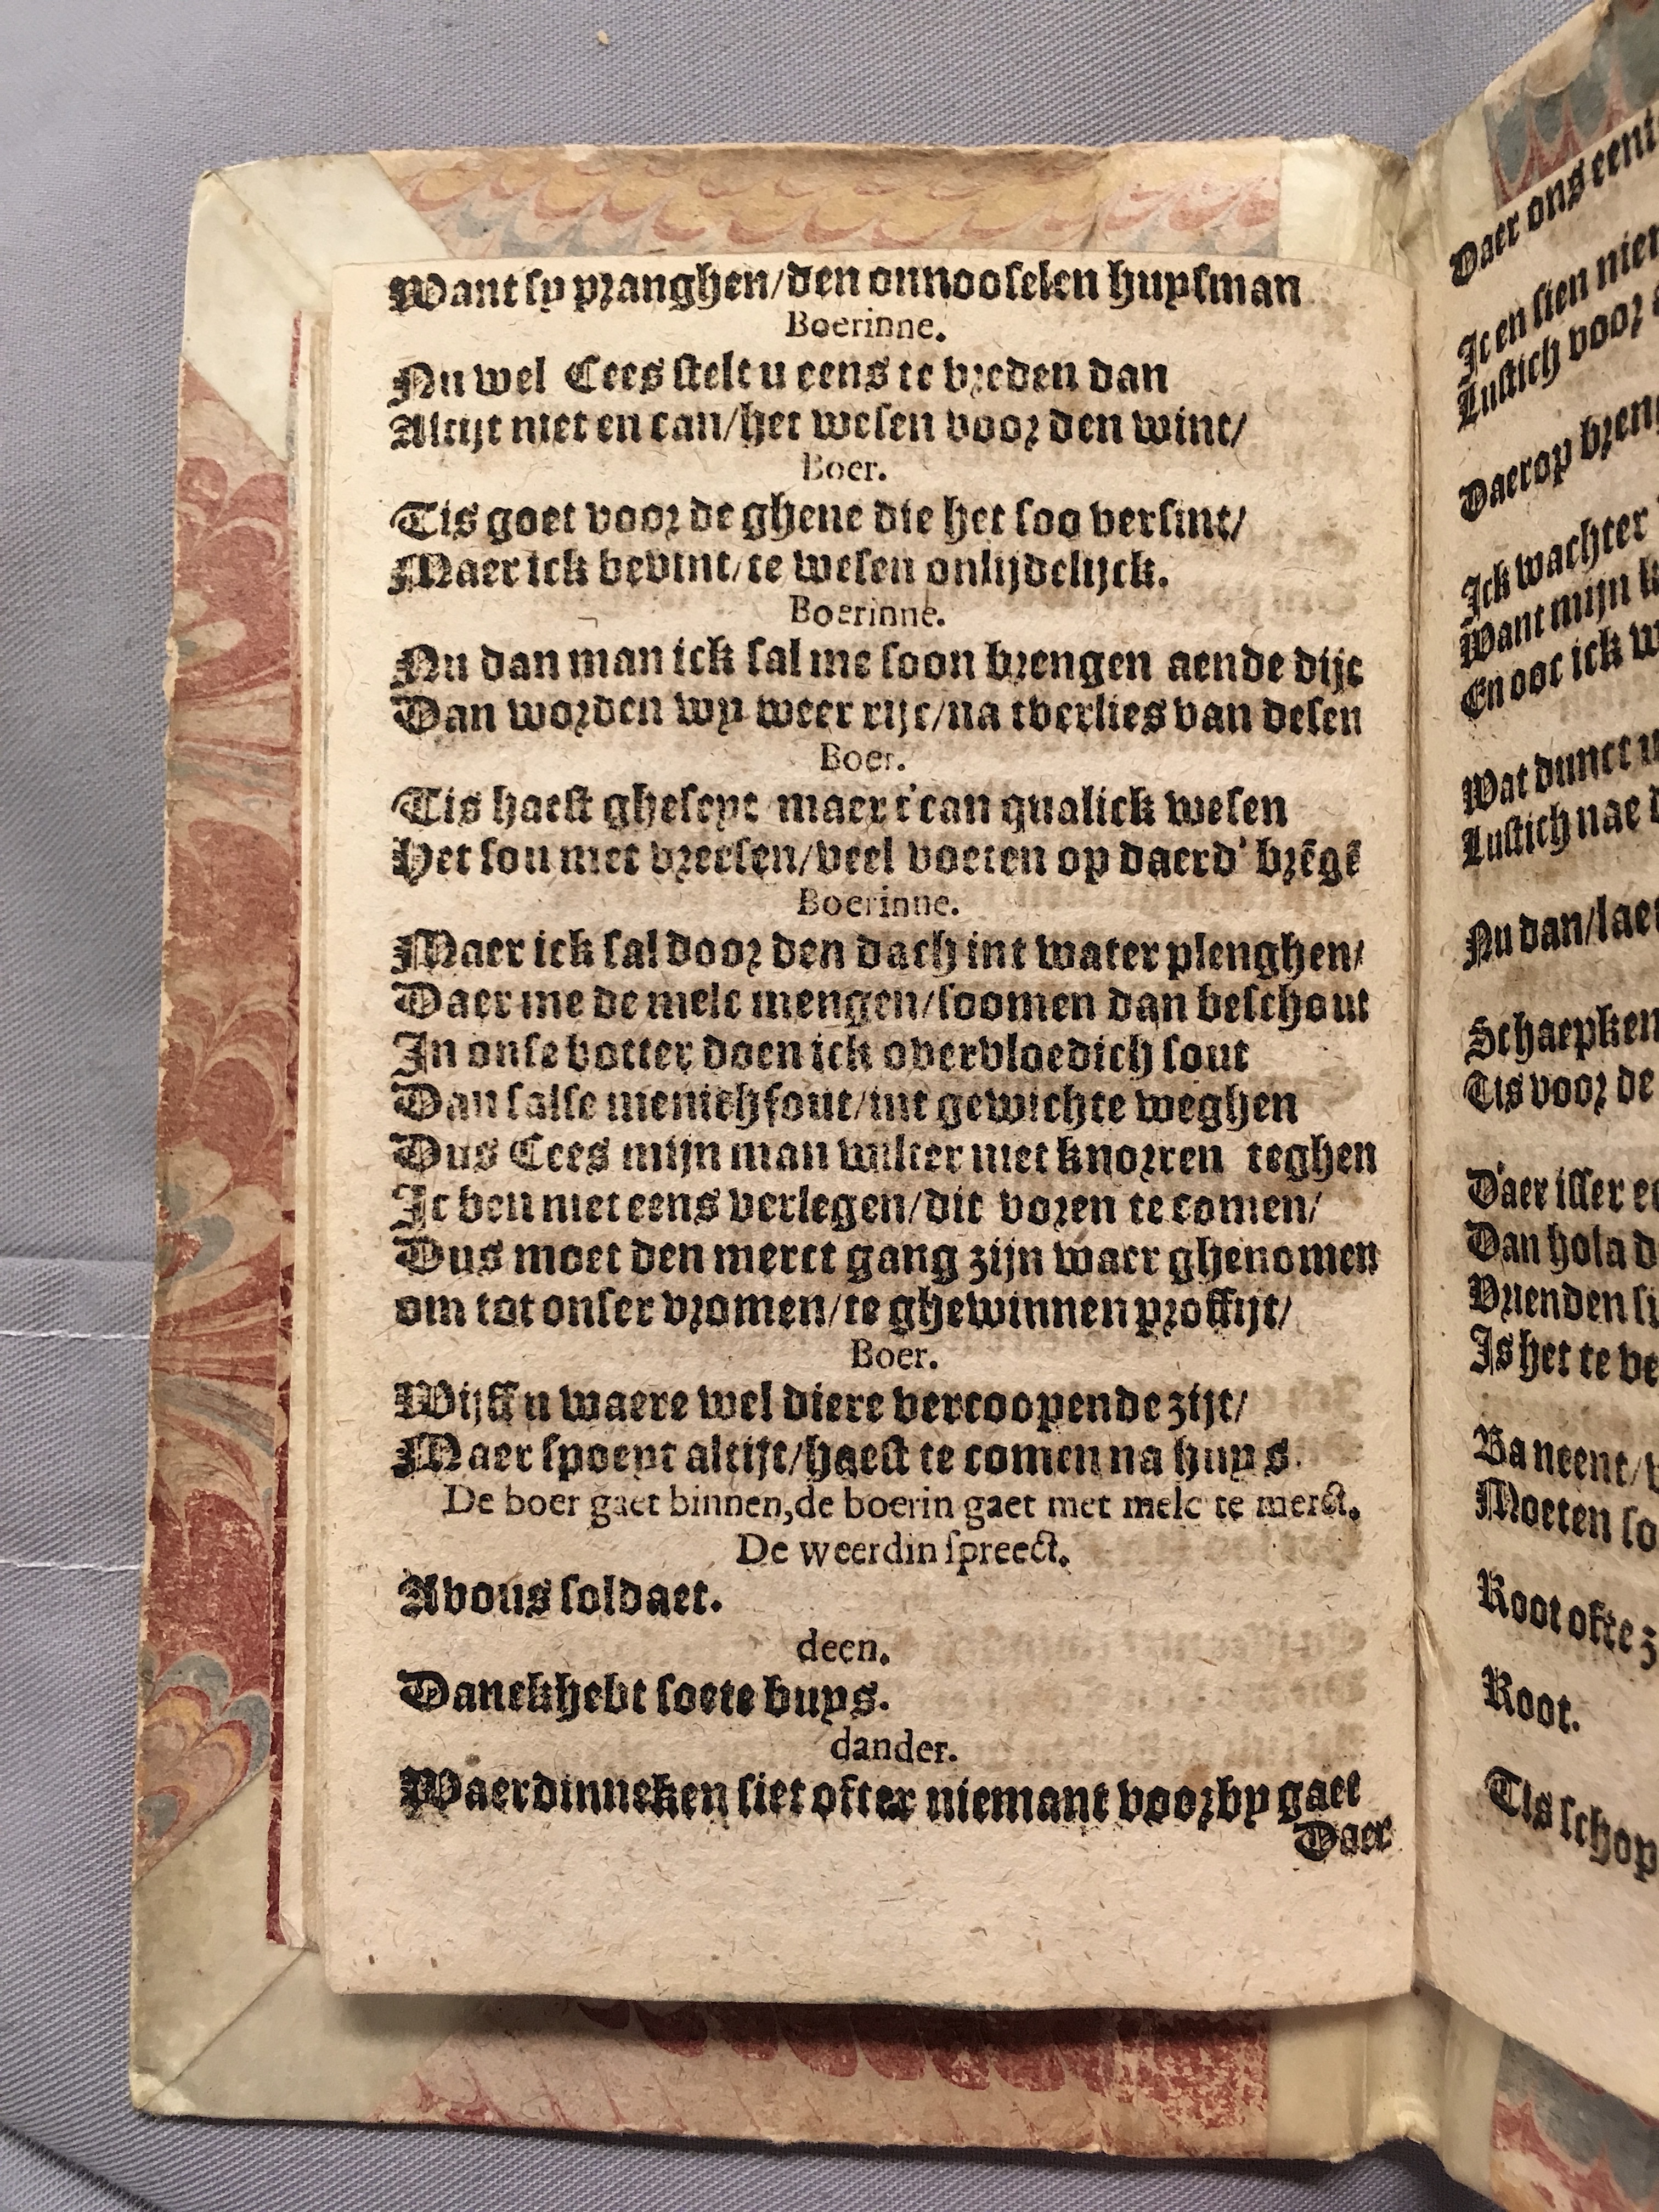 Want sy pranghen/den onnooselen huysman
Boerinne.
Nu wel Cees stelt u eens te vreden dan
Altijt niet en can/het wesen voor den wint/
Boer.
Tis goet voor de ghene die het soo versint/
Maer ick bevint/te wesen onlijdelijck.
Boerinne.
Nu dan man ick sal me soon brengen aende dijc
Dan worden wy weer rijc/na tverlies van desen
Boer.
Tis haest gheseyt maer t'can qualick wesen
Het sou met vreesen/veel voeten op daerd' brēgē
Boerinne.
Maer ick sal door den dach int water plenghen/
Daer me de melc mengen/soomen dan beschout
In onse botter doen ick overvloedich sout
Dan salse menichfout/int gewichte weghen
Dus Cees mijn man wilter niet knorren teghen
Ic ben niet eens verlegen/dit voren te comen/
Dus moet den merct gang zijn waer ghenomen
om tot onser vromen/te ghewinnen proffijt/
Boer.
Wijff u waere wel diere vercoopende zijt/
Maer spoeyt altijt/haest te comen na huys.
De boer gaet binnen,de boerin gaet met melc te merct.
De weerdin spreect.
Avous soldaet.
deen.
Danckhebt soete buys.
dander.
Waerdinneken siet ofter niemant voorby gaet
Daer
Daer ons eeni
Ic en sien nie
Lustich voor
Daerop breng
Ick wachter
Want mijn
En ooc ick w
Wat dunct u
Lustich nae
Nu dan/laet
Schaepken
Tis voor de
D'aer isser e
Dan hola d
Vrienden si
Is het te ve
Ba neent/
Moeten so
Root ofte z
Root.
Tis schop